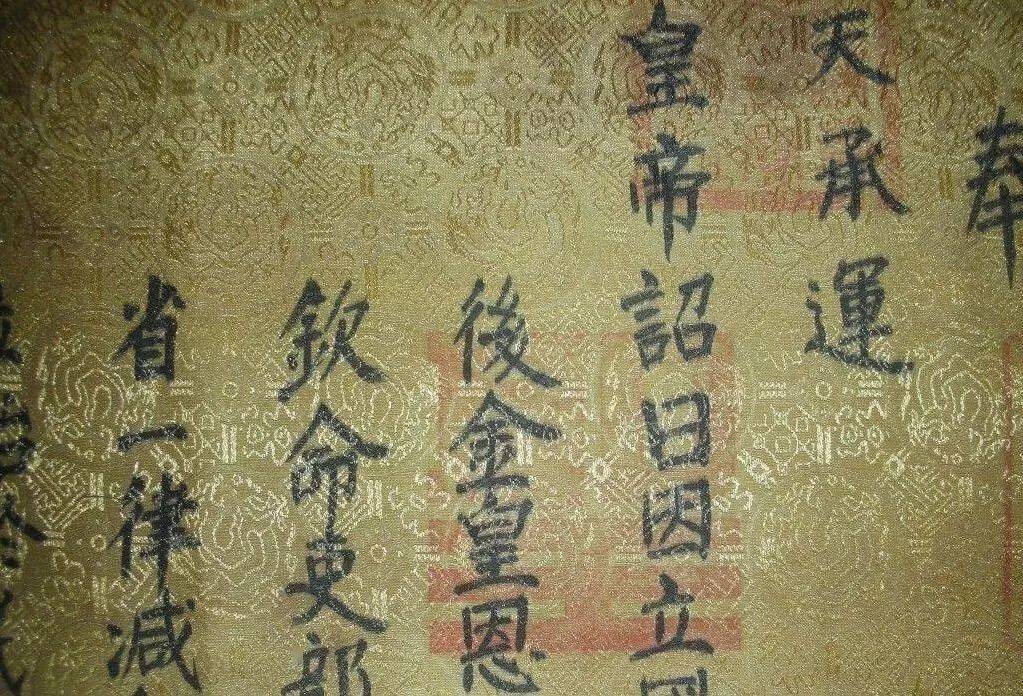 奉
天承運
皇帝詔曰因立國
後金皇恩
欽命吏部
省一律减